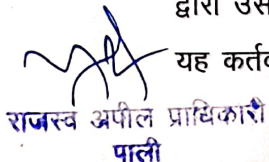 द्वारा उस
यह कर्तव
राजस्व अपील प्राधिकारी
पाली